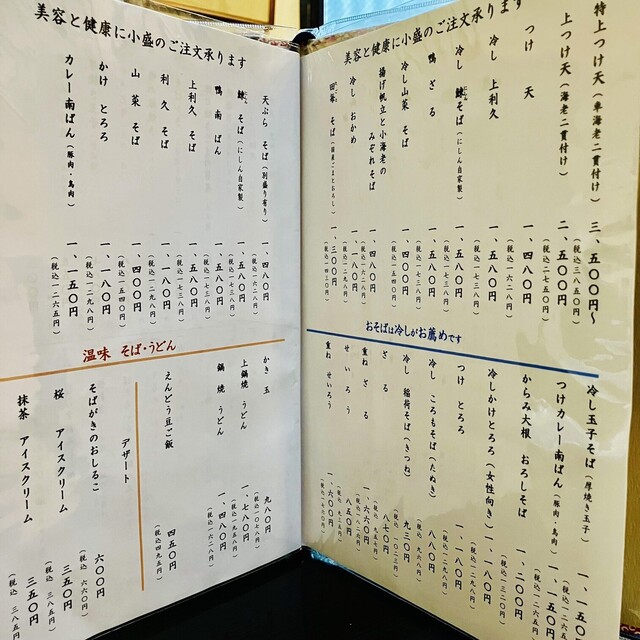 美容と健康に小盛のご注文承ります
特上つけ天（車海老二貫付け） 三、五〇〇円〜
（税込三八五〇円）
上つけ天（海老二貫付け） 二、五〇〇円
（税込二七五〇円）
つけ 天 一、四八〇円
（税込一六二八円）
冷し 上利久 一、五八〇円
（税込一七三八円）
冷し 鰊そば（にしん自家製） 一、五八〇円
（税込一七三八円）
鴨 ざる 一、五八〇円
（税込一七三八円）
冷し山菜 そば 一、四〇〇円
（税込一五四〇円）
揚げ帆立と小海老の
みぞれそば 一、四八〇円
冷し おかめ 一、一八〇円
（税込一二九八円）
田舎 そば 一、三〇〇円
（税込一四三〇円）
おそばは冷しがお薦めです
冷し玉子そば（厚焼き玉子） 一、一五〇円
つけカレー南ばん（豚肉・鳥肉） 一、一五〇円
（税込一二六五円）
からみ大根 おろしそば 一、二〇〇円
（税込一三二〇円）
冷しかけとろろ（女性向き） 一、一八〇円
（税込一二九八円）
つけ とろろ 一、一八〇円
（税込一二九八円）
冷し ころもそば（たぬき） 八八〇円
（税込九六八円）
冷し 稲荷そば（きつね） 九三〇円
（税込一〇二三円）
ざる 八七〇円
重ね ざる 一、六六〇円
（税込一八二六円）
せいろう 八五〇円
（税込九三五円）
重ね せいろう 一、六〇〇円
（税込一七六〇円）
美容と健康に小盛のご注文承ります
天ぷら そば（別盛り有り） 一、四八〇円
（税込一六二八円）
鰊 そば（にしん自家製） 一、五八〇円
（税込一七三八円）
鴨 南ばん 一、五八〇円
（税込一七三八円）
上利久 そば 一、五八〇円
（税込一七三八円）
利久 そば 一、一八〇円
（税込一二九八円）
山菜 そば 一、四〇〇円
（税込一五四〇円）
かけ とろろ 一、一八〇円
（税込一二九八円）
カレー南ばん（豚肉・鳥肉） 一、一五〇円
（税込一二六五円）
温味 そば・うどん
かき玉 九八〇円
（税込一〇七八円）
上鍋焼 うどん 一、七八〇円
（税込一九五八円）
鍋焼 うどん 一、四八〇円
（税込一六二八円）
えんどう豆ご飯 四五〇円
（税込四九五円）
デザート
そばがきのおしるこ 六〇〇円
（税込 六六〇円）
桜 アイスクリーム 三五〇円
（税込 三八五円）
抹茶 アイスクリーム 三五〇円
（税込 三八五円）